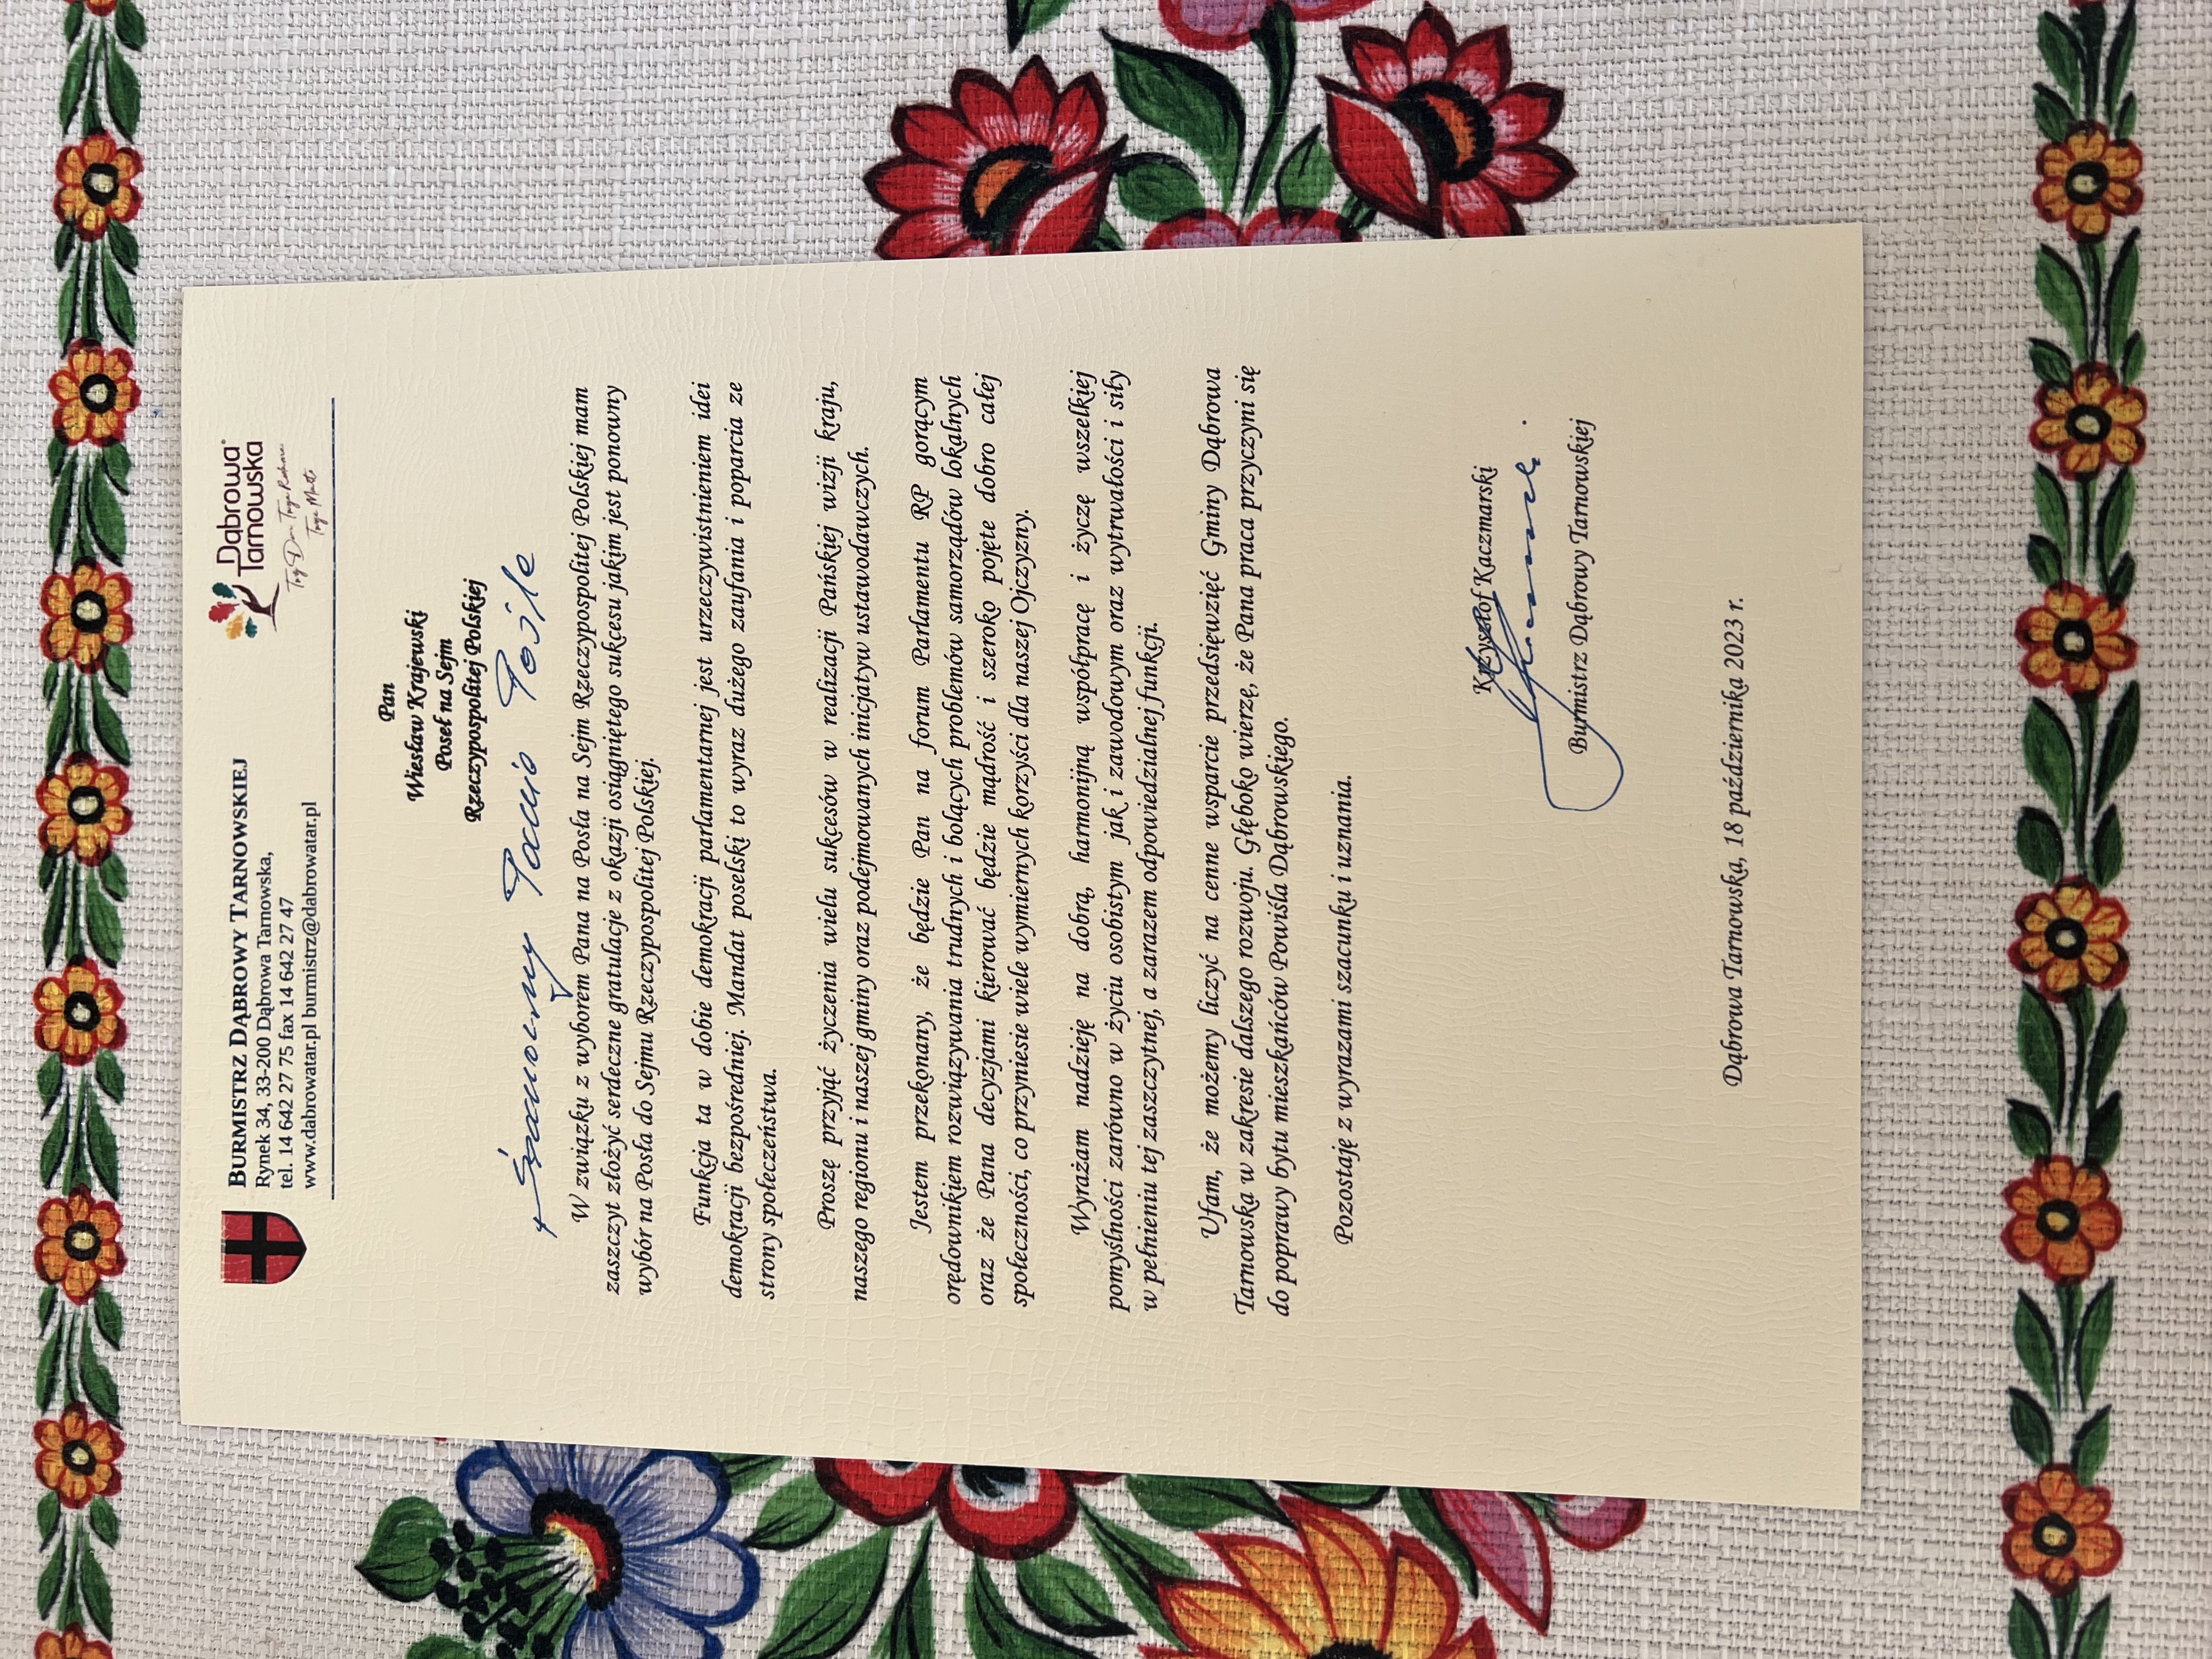 BURMISTRZ DĄBROWY TARNOWSKIEJ
Rynek 34, 33-200 Dąbrowa Tarnowska,
tel. 14 642 27 75 fax 14 642 27 47
www.dabrowatar.pl burmistrz@dabrowatar.pl
Dąbrowa
Tarnowska
Twój Dom Twoja Rodzina
Twoje Miasto
Pan
Wiesław Krajewski
Poseł na Sejm
Rzeczypospolitej Polskiej
Szanowny Panie Pośle
W związku z wyborem Pana na Posła na Sejm Rzeczypospolitej Polskiej mam
zaszczyt złożyć serdeczne gratulacje z okazji osiągniętego sukcesu jakim jest ponowny
wybór na Posła do Sejmu Rzeczypospolitej Polskiej.
Funkcja ta w dobie demokracji parlamentarnej jest urzeczywistnieniem idei
demokracji bezpośredniej. Mandat poselski to wyraz dużego zaufania i poparcia ze
strony społeczeństwa.
Proszę przyjąć życzenia wielu sukcesów w realizacji Pańskiej wizji kraju,
naszego regionu i naszej gminy oraz podejmowanych inicjatyw ustawodawczych.
Jestem przekonany, że będzie Pan na forum Parlamentu RP gorącym
orędownikiem rozwiązywania trudnych i bolących problemów samorządów lokalnych
oraz że Pana decyzjami kierować będzie mądrość i szeroko pojęte dobro całej
społeczności, co przyniesie wiele wymiernych korzyści dla naszej Ojczyzny.
Wyrażam nadzieję na dobrą, harmonijną współpracę i życzę wszelkiej
pomyślności zarówno w życiu osobistym jak i zawodowym oraz wytrwałości i siły
w pełnieniu tej zaszczytnej, a zarazem odpowiedzialnej funkcji.
Ufam, że możemy liczyć na cenne wsparcie przedsięwzięć Gminy Dąbrowa
Tarnowska w zakresie dalszego rozwoju. Głęboko wierzę, że Pana praca przyczyni się
do poprawy bytu mieszkańców Powiśla Dąbrowskiego.
Pozostaję z wyrazami szacunku i uznania.
Krzysztof Kaczmarski
Burmistrz Dąbrowy Tarnowskiej
Dąbrowa Tarnowska, 18 października 2023 r.